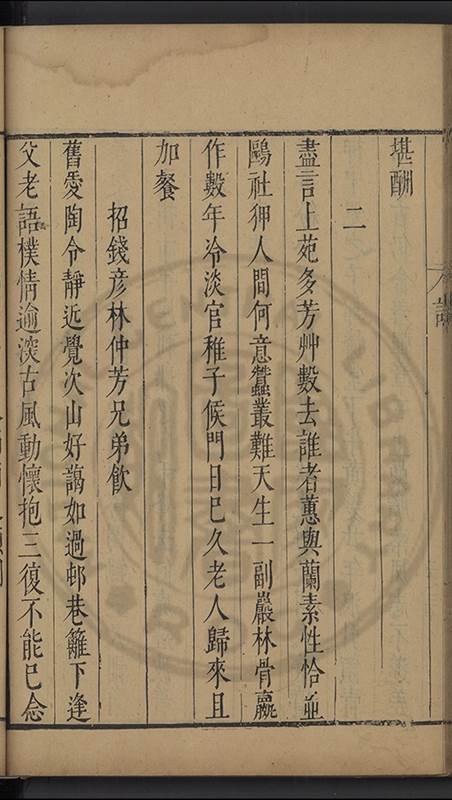 堪酬
二
盡言上苑多芳艸數去誰者蕙與蘭素性恰並
鷗社狎人間何意蠶叢難天生一副巖林骨羸
作數年冷淡官稚子候門日已久老人歸來且
加餐
招錢彥林仲芳兄弟飲
舊愛陶令靜近覺次山好藹如過邨巷籬下逢
父老語樸情逾淡古風動懷抱三復不能已念